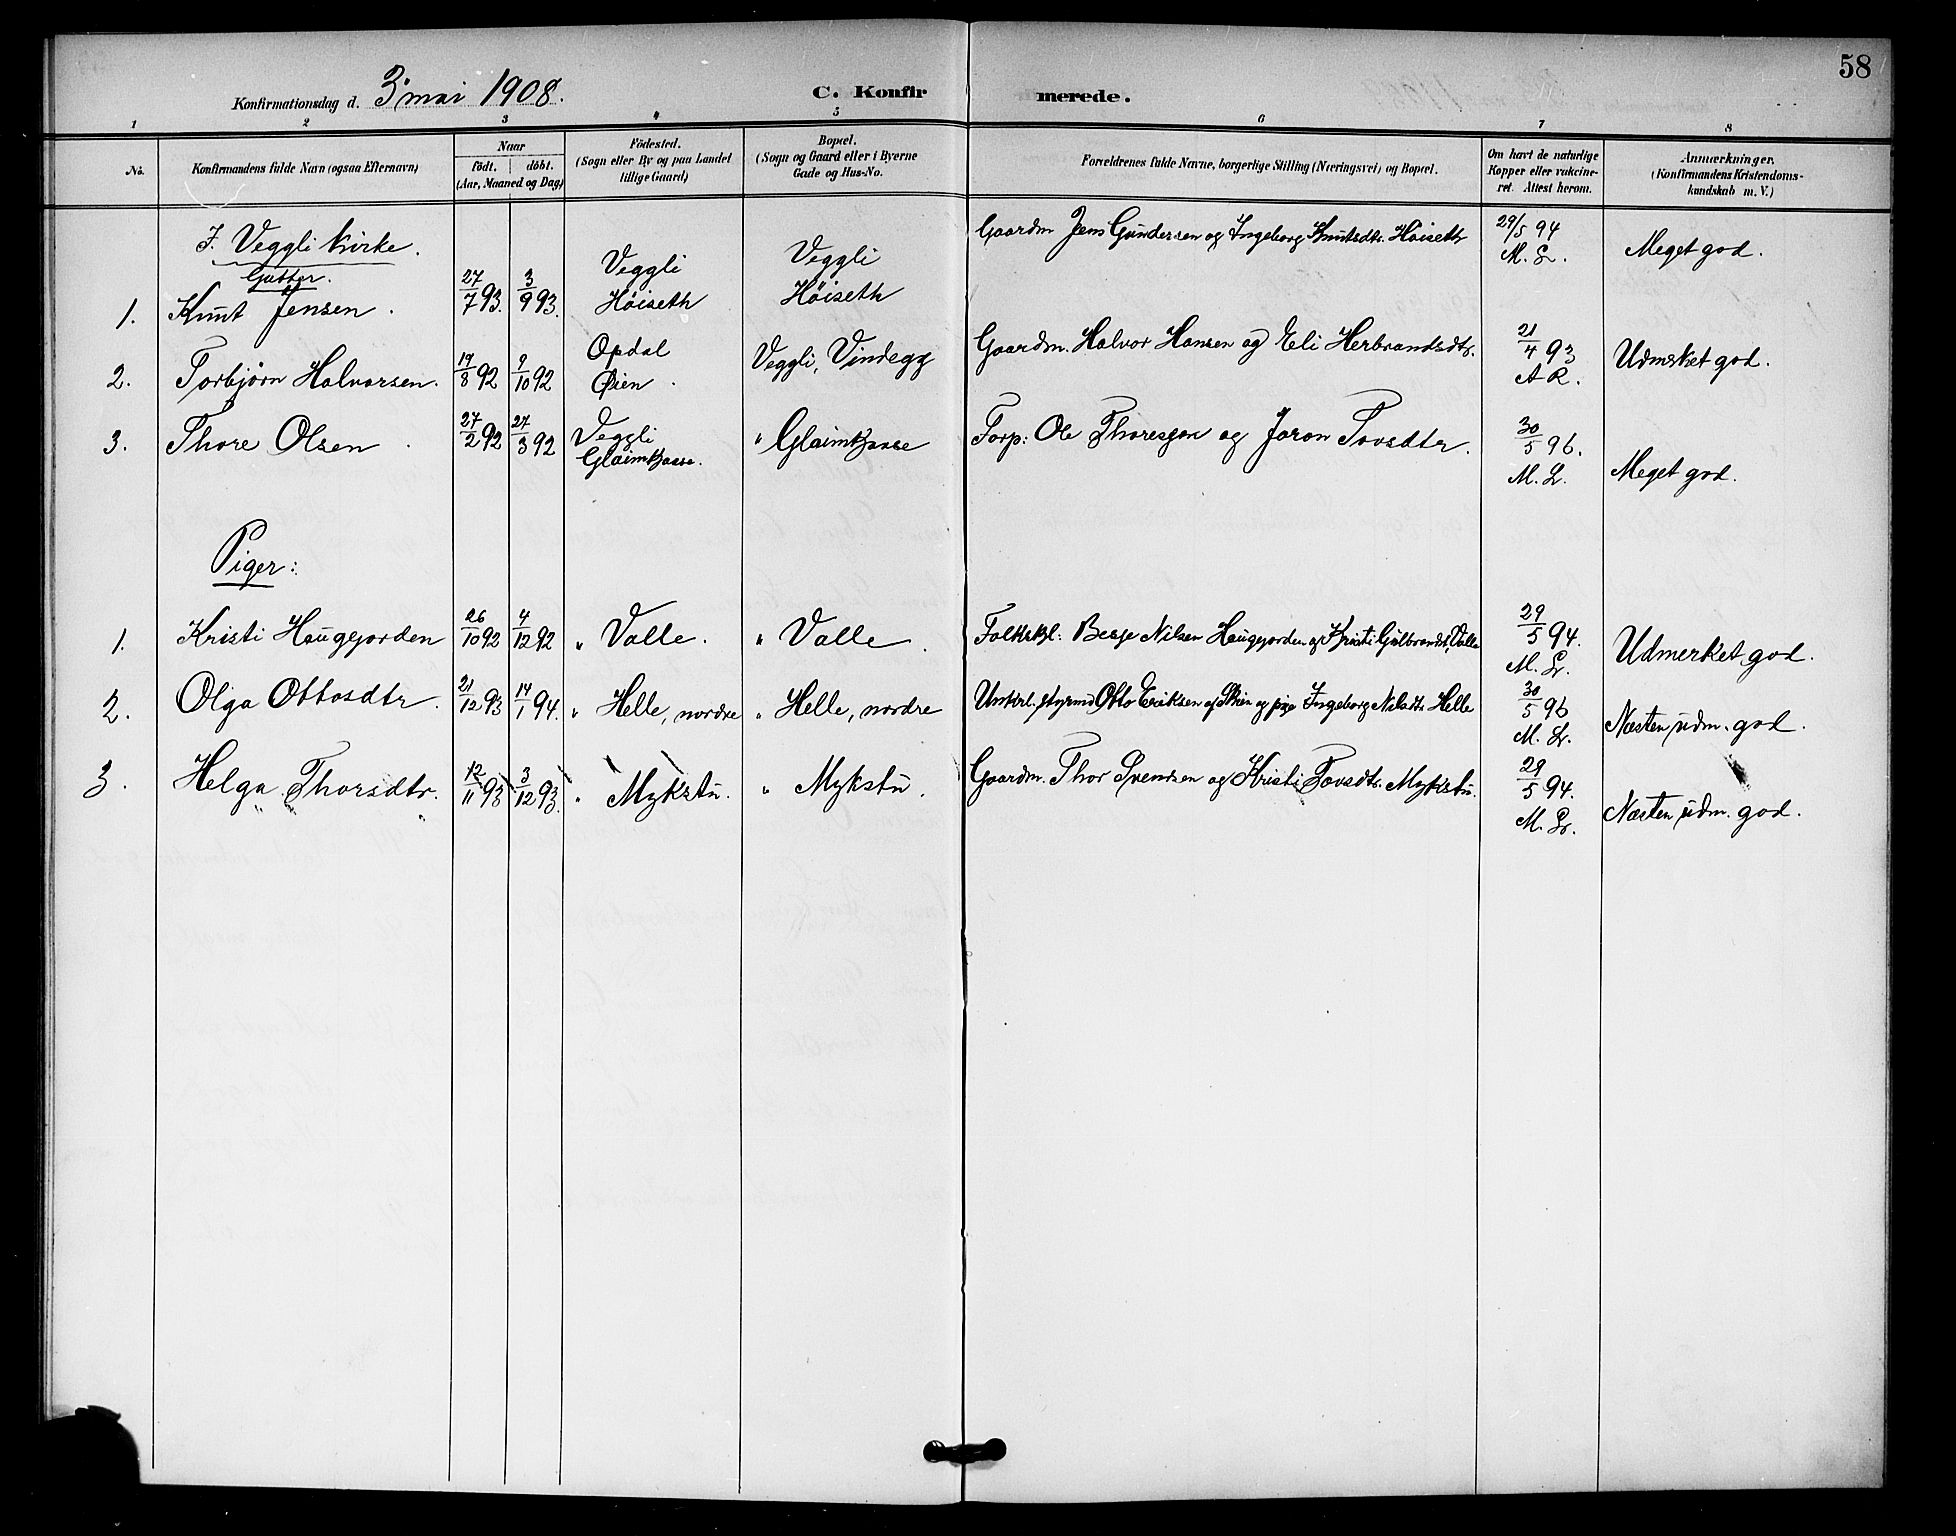 58
Konfirmationsdag d. 3 mai 1908.
C. Konfirmerede.
1 2 3 4 5 6 7 8
No. Konfirmandens fulde Navn (ogsaa Efternavn) Naar født. døbt. (Aar, Maaned og Dag) Födested. (Sogn eller By og paa Landet tillige Gaard) Bopæl. (Sogn og Gaard eller i Byerne Gade og Hus-No. Forældrenes fulde Navne, borgerlige Stilling (Næringsvei) og Bopæl. Om havt de naturlige Kopper eller vakcineret. Attest herom. Anmærkninger. (Konfirmandens Kristendomskundskab m. V.)
I Veggli kirke.
Gutter.
1. Knut Jensen. 27/7 93. 3/9 93. Veggli Höiseth Veggli Höiseth Gaardm Jens Gundersen og Ingeborg Knutsdtr. Höiseth 29/5 94 M. L. Meget god.
2. Torbjørn Halvorsen. 19/8 92 9/10 92 Opdal Øien. Veggli, Vindegg Gaardm. Halvor Hansen og Eli Herbrandsdtr. 21/4 93 A R. Udmerket god.
3. Thore Olsen. 27/2 92 27/3 92 Veggli Glaimhasse. " Glaimhasse Torp: Ole Thoresen og Joron Tovsdtr. 30/5 96. M. L. Meget god.
Piger:
1. Kristi Haugejorden 26/10 92 4/12 92 " Valle. " Valle. Folkeskl: Nilsen Haugejorden og Kristi Gulbrandsd, Valle 29/5 94. M. Lr. Udmerket god.
2. Olga Ottosdtr. 21/12 93 14/1 94. " Helle, nordre " Helle, nordre Unkrl. styrmd Otto Eriksen af Skien og pige Ingeborg Nilsdtr. Helle 30/5 96 M. Lr. Næsten udm. god.
3. Helga Thorsdtr. 12/11 93 3/12 93. " Mykstu. " Mykstu. Gaardm. Thor Svendsen og Kristi Tovsdtr. Mykstu. 29/5 94. M. Lr. Næsten udm. god.